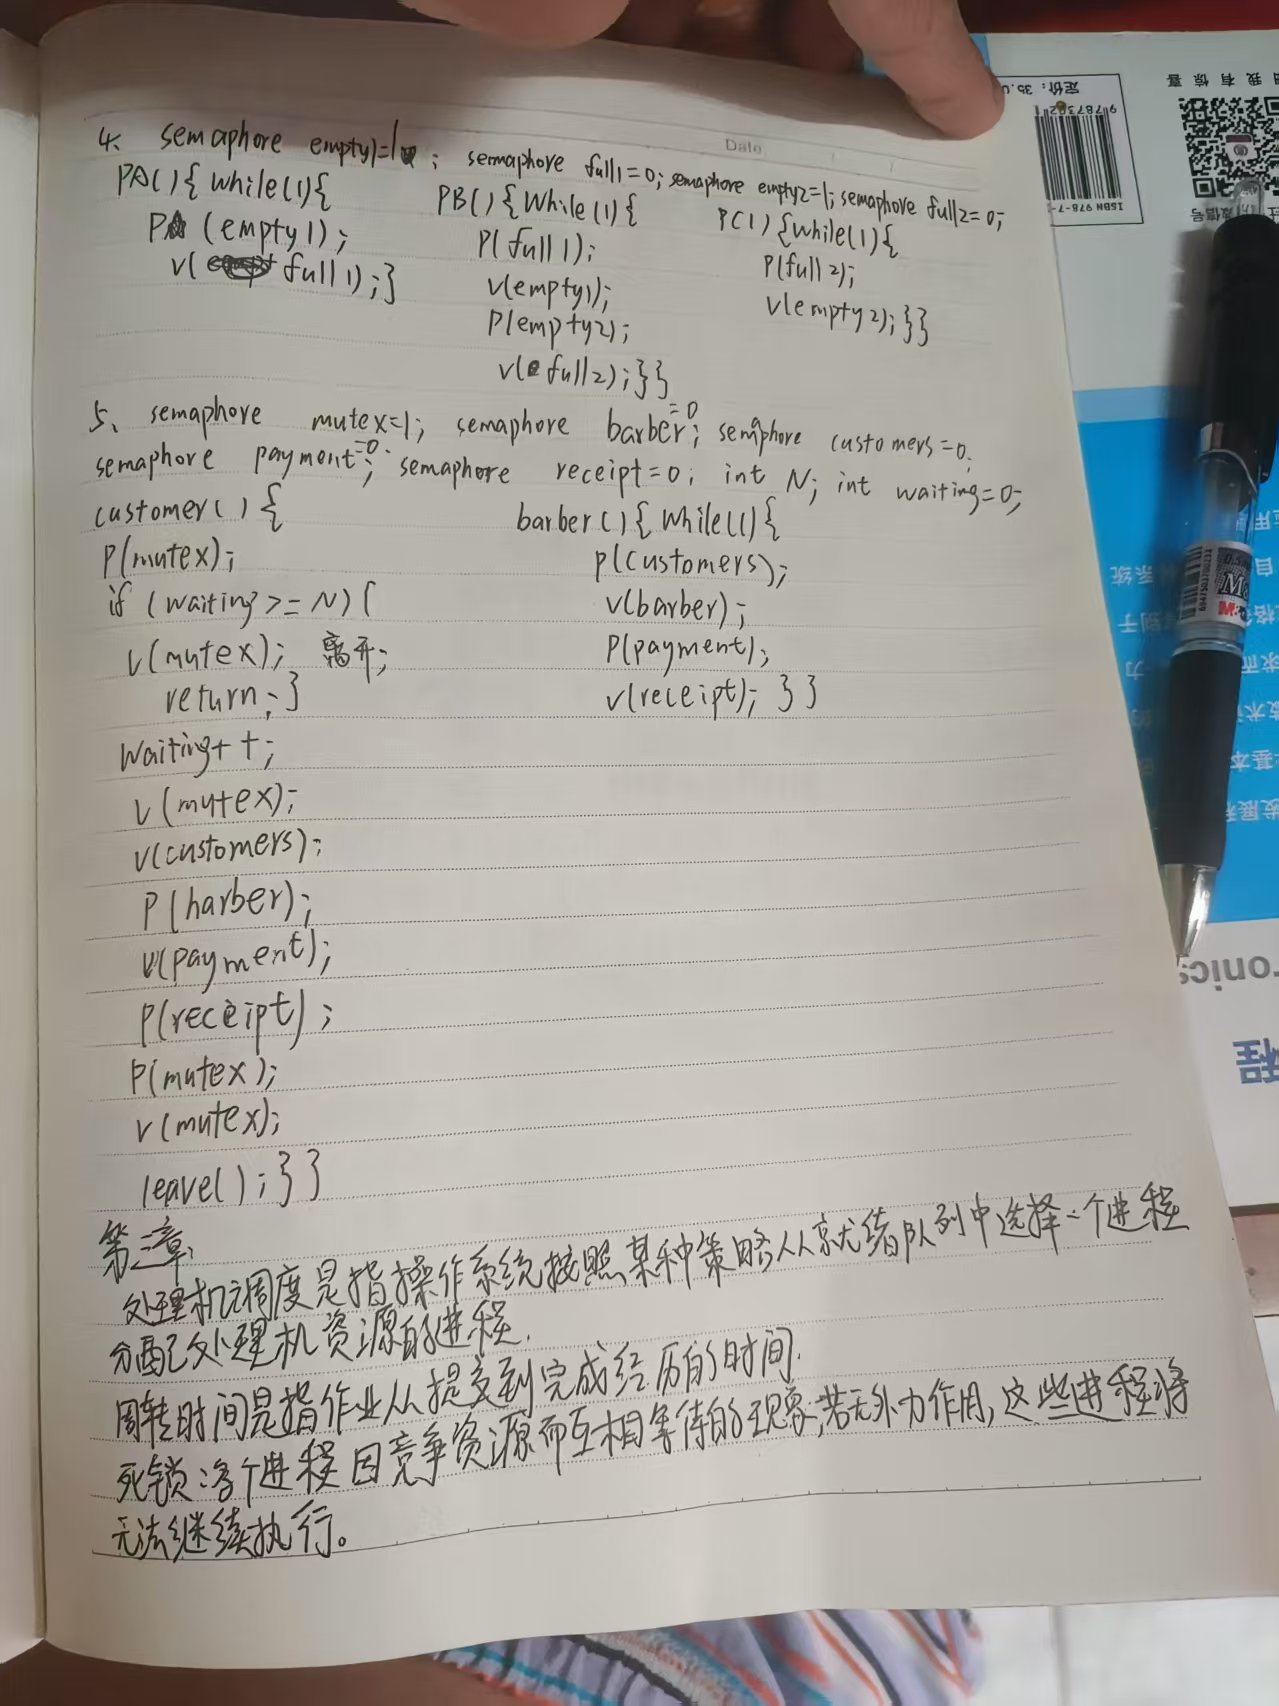 Date
4、 semaphore empty1=1 ; semaphore full1=0; semaphore empty2=1; semaphore full2=0;
PA(){while(1){
P (empty1);
v( full1);}
PB(){While(1){
P(full1);
v(empty1);
P(empty2);
v( full2);}}
PC(){while(1){
P(full2);
v(empty2);}}
5、 semaphore mutex=1; semaphore barber=0; semaphore customers=0;
semaphore payment=0; semaphore receipt=0; int N; int waiting=0;
customer(){
P(mutex);
if (waiting>=N){
v(mutex); 离开;
return;}
Waiting++;
v(mutex);
v(customers);
P(barber);
v(payment);
P(receipt);
P(mutex);
v(mutex);
leave();}}
barber(){While(1){
P(customers);
v(barber);
P(payment);
v(receipt);}}
第三章
处理机调度是指操作系统按照某种策略从就绪队列中选择一个进程
分配处理机资源的进程.
周转时间是指作业从提交到完成经历的时间.
死锁:各个进程因竞争资源而互相等待的现象,若无外力作用,这些进程将
无法继续执行。
定价:35.0
ISBN 978-7-
ronics
程